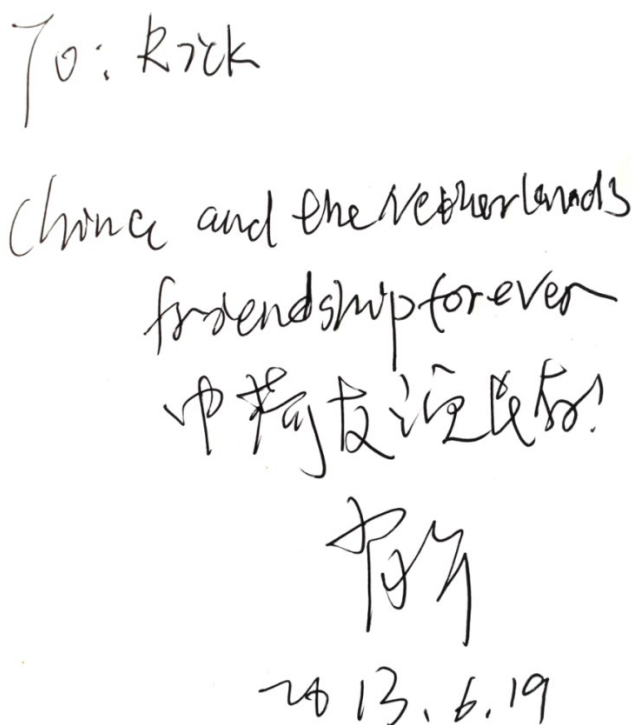 To: Rick
China and the Netherlands
friendship forever
中荷友谊长存!
2013.6.19